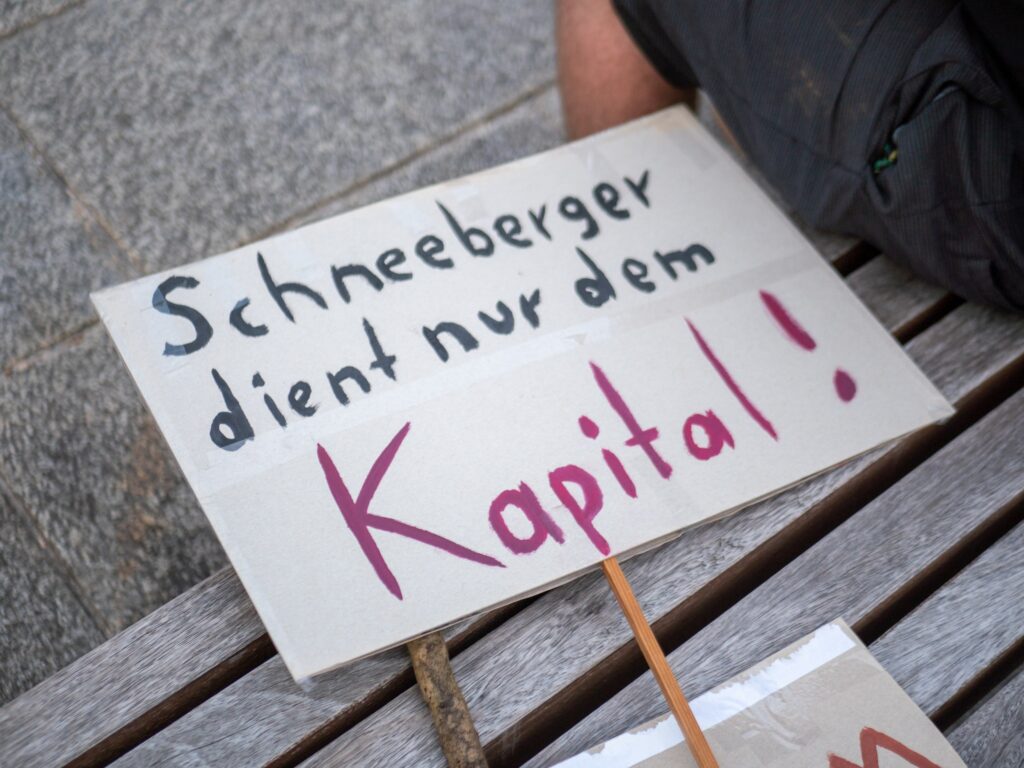 Schneeberger
dient nur dem
Kapital!